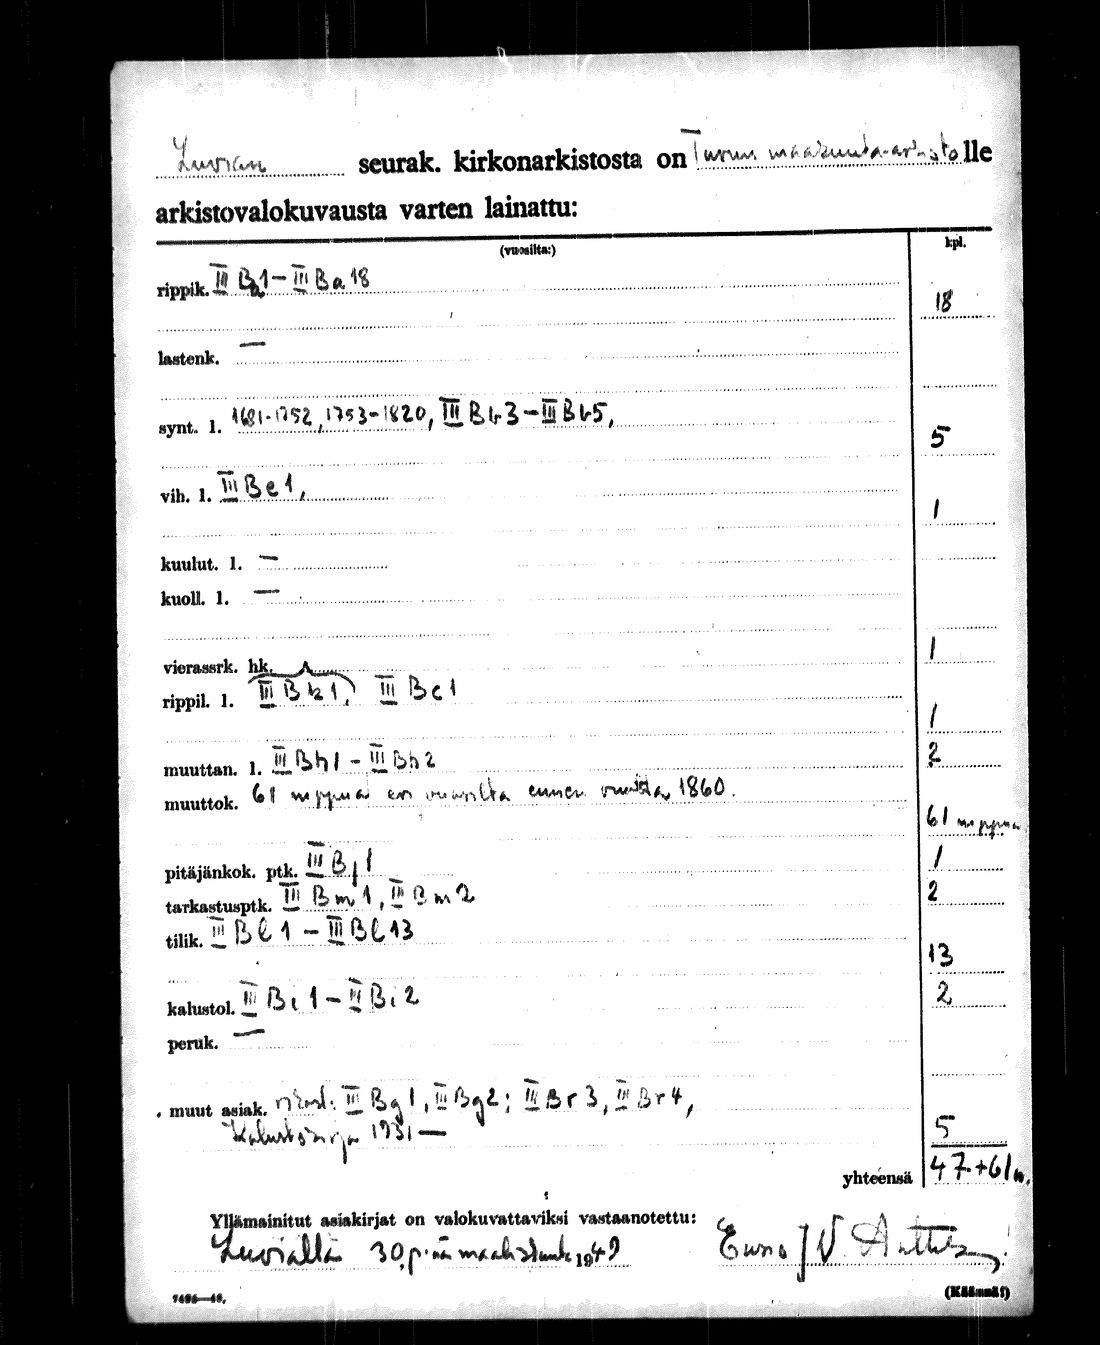 Luvian seurak. kirkonarkistosta on Turun maakunta-arkistolle
arkistovalokuvausta varten lainattu:
(vuosilta:) kpl.
rippik. III Ba1 – III Ba 18
18
lastenk. —
synt. l. 1681-1752, 1753-1820, III Bb3 – III Bb5,
5
vih. l. III Be 1,
1
kuulut. l. —
kuoll. l. —
vierassrk. hk.
1
rippil. l. III Bk1, III Bc1
1
muuttan. l. III Bh1 – III Bh2 2
muuttok. 61 nippua eri vuosilta ennen vuotta 1860.
61 nippua
pitäjänkok. ptk. III Bj1 1
tarkastusptk. III Bm1, III Bm2 2
tilik. III Bl 1 – III Bl 13
13
kalustol. III Bi 1 – III Bi 2 2
peruk. —
muut asiak. III Bg1, III Bg2; III Br3, III Br4,
Kalustokirja 1931—
5
yhteensä 47+61n.
Yllämainitut asiakirjat on valokuvattaviksi vastaanotettu:
Luvialla 30 p:nä maaliskuuta 1949
1496—48.
(Käännä!)